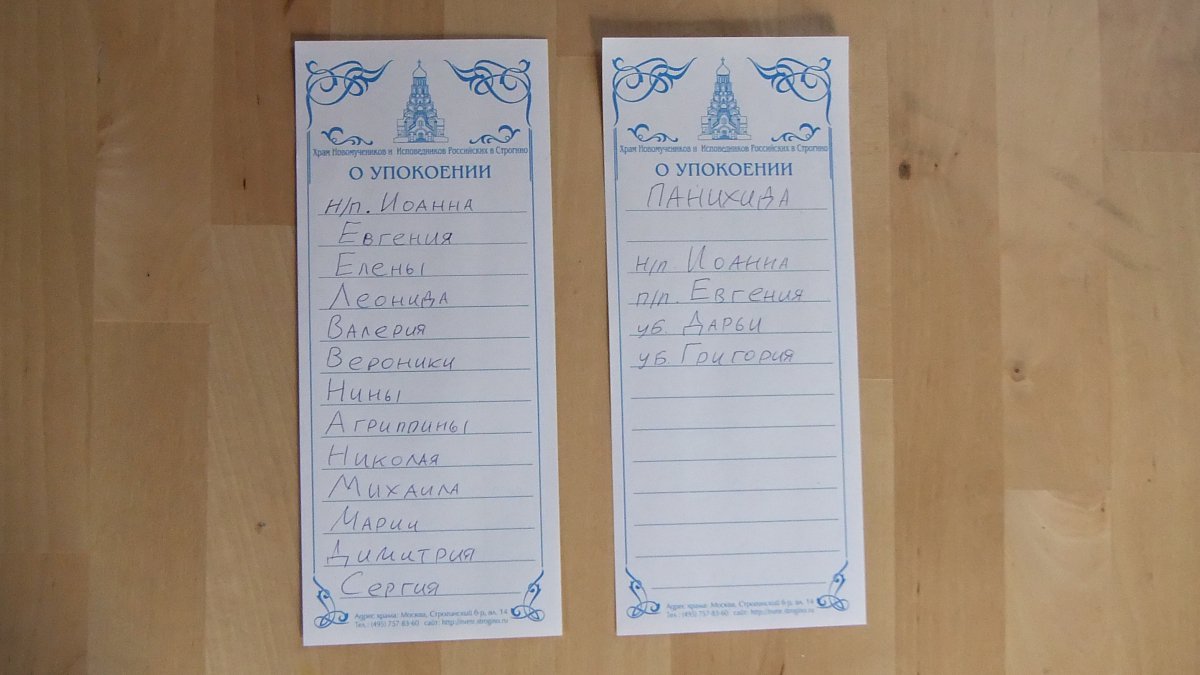 Храм Новомучеников и Исповедников Российских в Строгино
О УПОКОЕНИИ
н/п. Иоанна
Евгения
Елены
Леонида
Валерия
Вероники
Нины
Агриппины
Николая
Михаила
Марии
Димитрия
Сергия
Адрес храма: Москва, Строгинский б-р, вл. 14
Тел.: (495) 757-83-60 сайт: http://nvmr.strogino.ru
Храм Новомучеников и Исповедников Российских в Строгино
О УПОКОЕНИИ
ПАНИХИДА
н/п. Иоанна
п/п. Евгения
уб. Дарьи
уб. Григория
Адрес храма: Москва, Строгинский б-р, вл. 14
Тел.: (495) 757-83-60 сайт: http://nvmr.strogino.ru